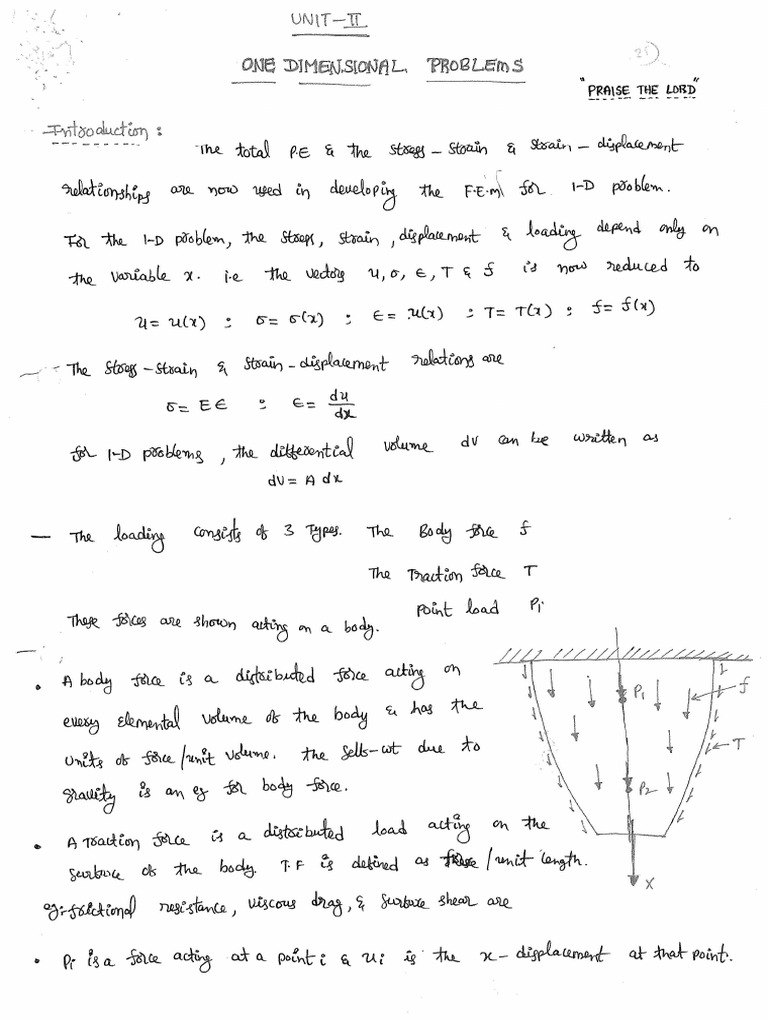 UNIT-II
ONE DIMENSIONAL PROBLEMS
21
"PRAISE THE LORD"
Introduction:
The total P.E & the stress-strain & strain-displacement
relationships are now used in developing the F.E.M for 1-D problem.
For the 1-D problem, the stress, strain, displacement & loading depend only on
the variable x. i.e the vectors u, σ, ϵ, T & f is now reduced to
u = u(x) : σ = σ(x) : ϵ = u(x) : T = T(x) : f = f(x)
The stress-strain & strain-displacement relations are
σ = Eϵ : ϵ = du/dx
for 1-D problems, the differential volume dv can be written as
dv = A dx
— The loading consists of 3 Types. The Body force f
The Traction force T
Point load Pi
These forces are shown acting on a body.
• A body force is a distributed force acting on
every elemental volume of the body & has the
units of force/unit volume. The self-wt due to
gravity is an eg for body force.
• A Traction force is a distributed load acting on the
surface of the body. T.F is defined as force/unit length.
eg:- frictional resistance, viscous drag, & surface shear are
• Pi is a force acting at a point i & ui is the x-displacement at that point.
P1
f
T
P2
X